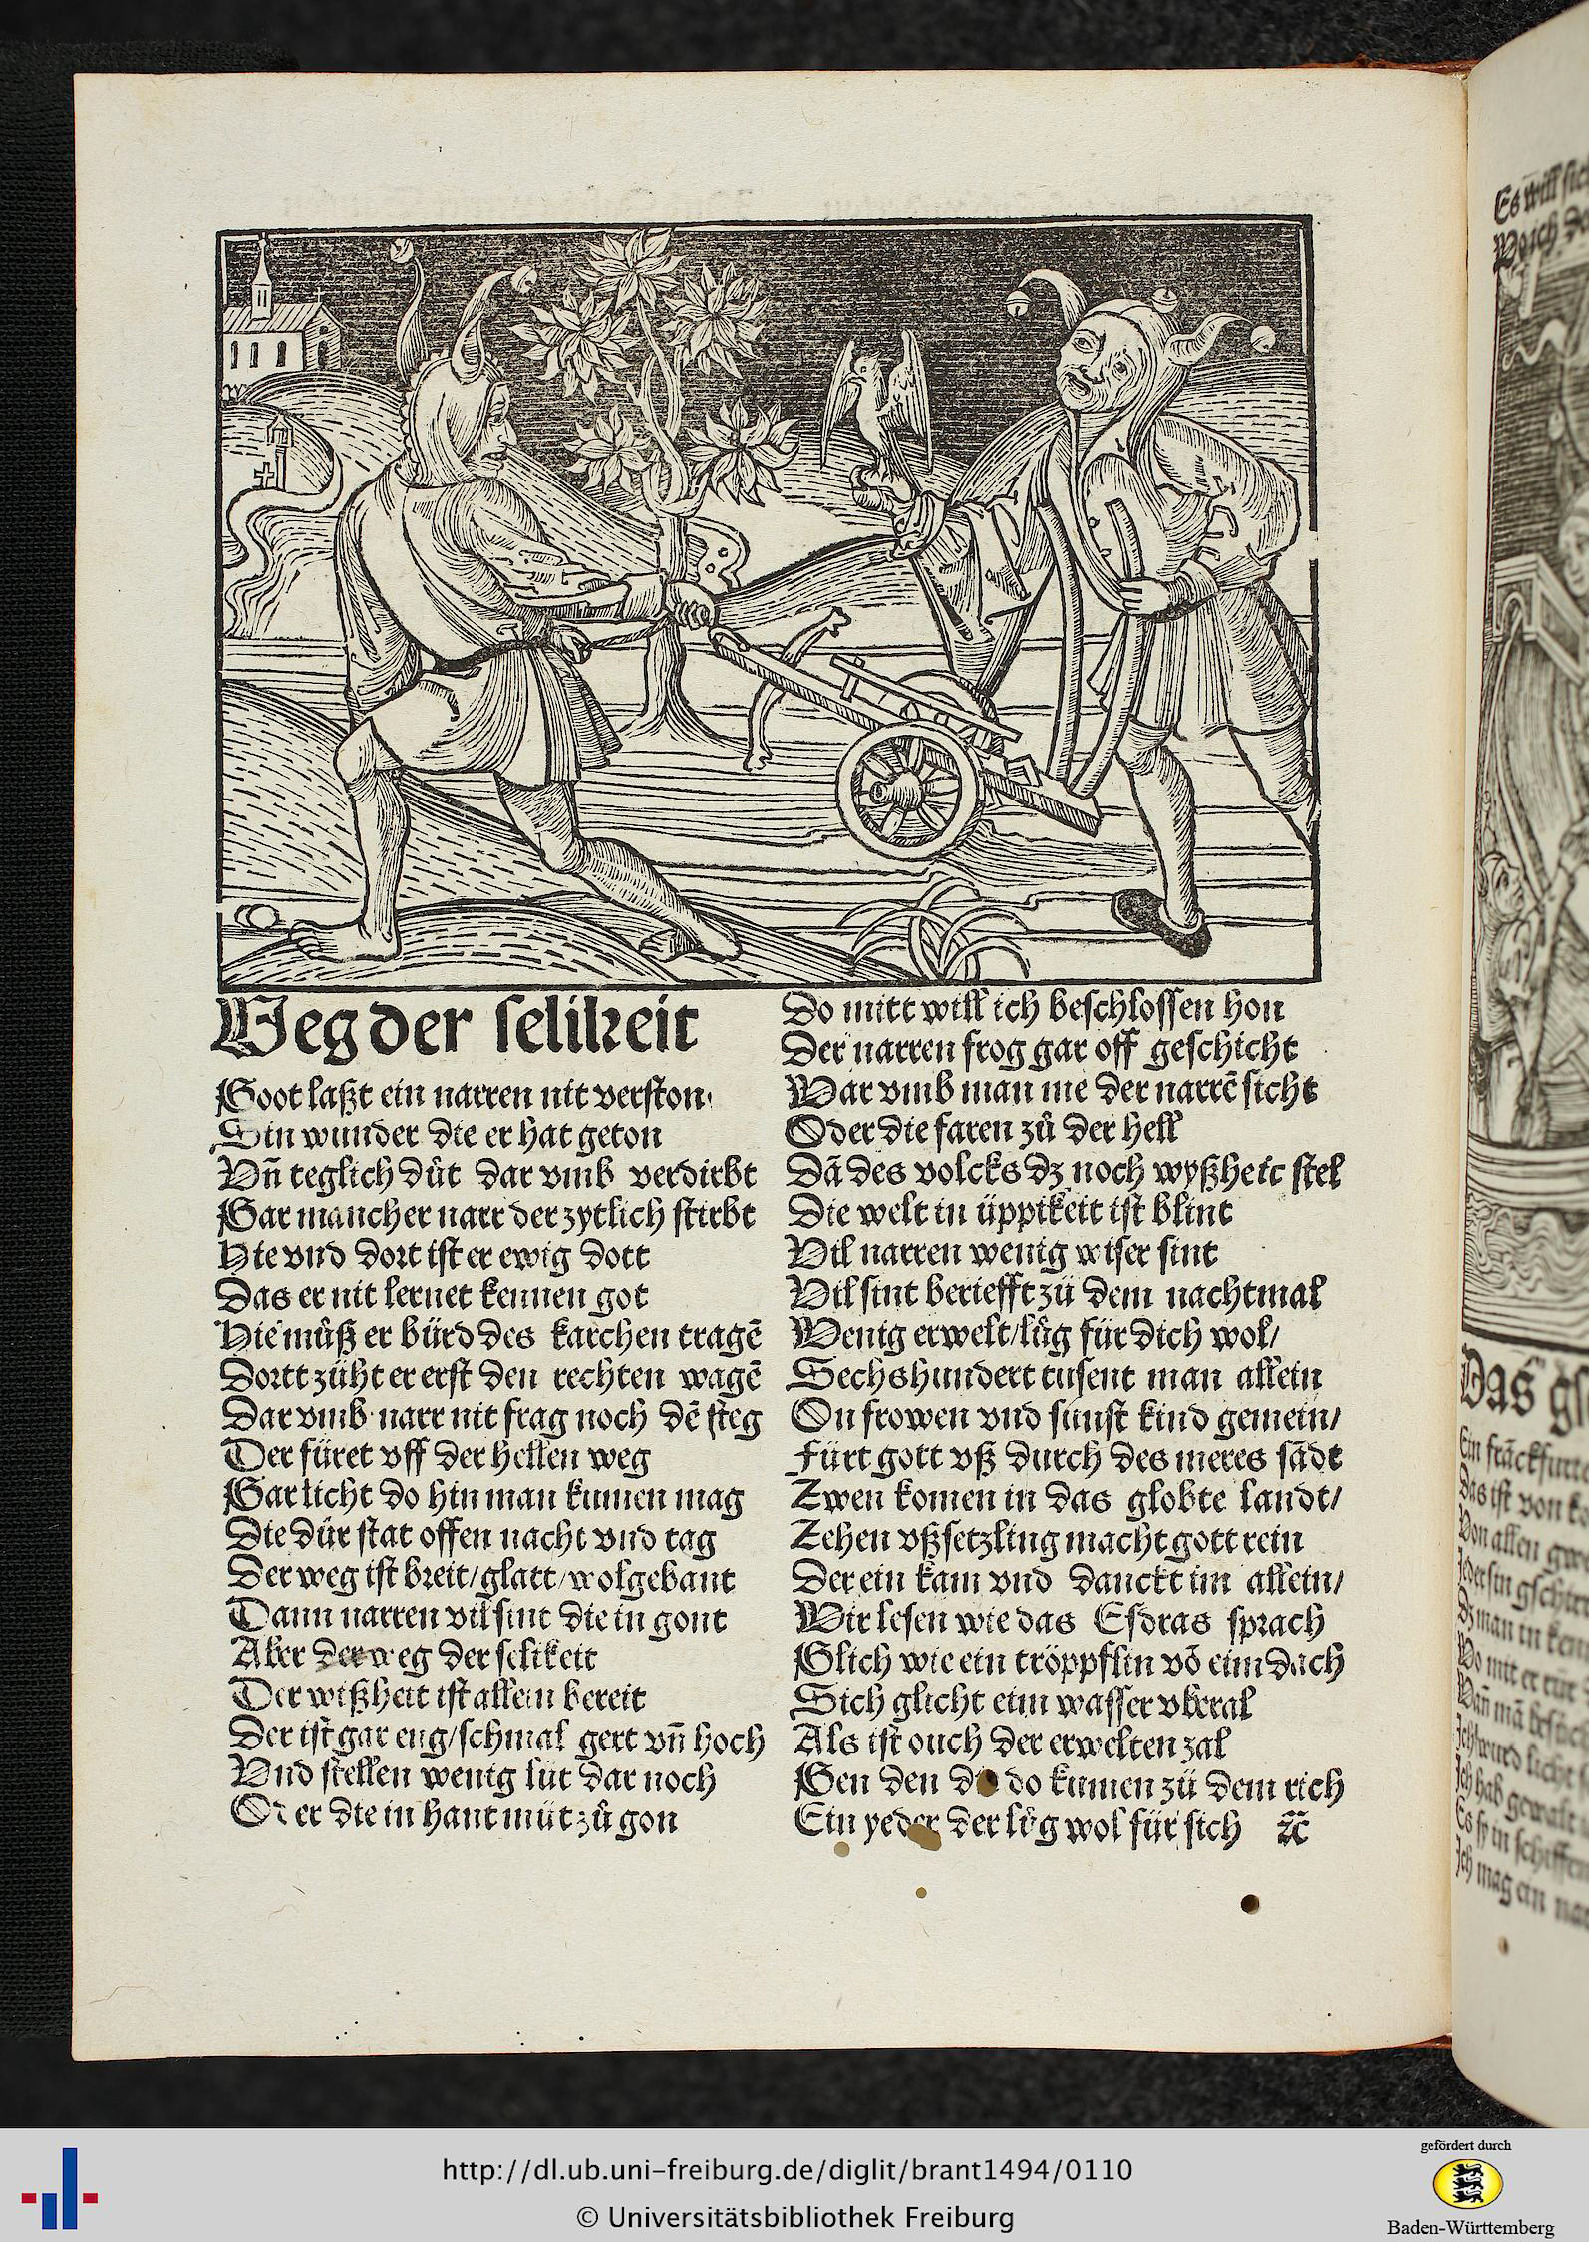 Weg der selikeit
Goot laßt ein narren nit verston
Sin wunder die er hat geton
Vn̄ teglich důt dar vmb verdirbt
Gar mancher narr der zytlich stirbt
Hie vnd dort ist er ewig dott
Das er nit lernet kennen got
Hie můß er bürd des karchen tragē
Dortt züht er erst den rechten wagē
Dar vmb narr nit frag noch dē steg
Der füret vff der hellen weg
Gar licht do hin man kumen mag
Die dür stat offen nacht vnd tag
Der weg ist breit/glatt/wolgebant
Dann narren vil sint die in gont
Aber der weg der selikeit
Der wißheit ist allein bereit
Der ist gar eng/schmal gert vn̄ hoch
Vnd stellen wenig lüt dar noch
Oder die in hant müt zů gon
Do mitt will ich beschlossen hon
Der narren frog gar off geschicht
War vmb man me der narrē sicht
Oder die faren zů der hell
Dā des volcks dz noch wyßheit stel
Die welt in üppikeit ist blint
Vil narren wenig wiser sint
Vil sint beriefft zü dem nachtmal
Wenig erwelt/lůg für dich wol/
Sechshundert tusent man allein
On frowen vnd sunst kind gemein/
Fürt gott vß durch des meres sādt
Zwen komen in das globte landt/
Zehen vßsetzling macht gott rein
Der ein kam vnd danckt im allein/
Wir lesen wie das Esdras sprach
Glich wie ein tröppflin vō eim dach
Sich glicht eim wasser vberal
Als ist ouch der erwelten zal
Gen den die do kumen zü dem rich
Ein yeder der lůg wol für sich ⁊c̄
Es will sich
Das gs
Ein frāckfurte
Das ist von
Von allen
Jeder sin gschirr
Dz man in
Wo mit er rür
Wañ mā
Ich wurd licht
Ich hab gewalt
Es sy in schiffen
Ich mag ein
http://dl.ub.uni-freiburg.de/diglit/brant1494/0110
© Universitätsbibliothek Freiburg
gefördert durch
Baden-Württemberg